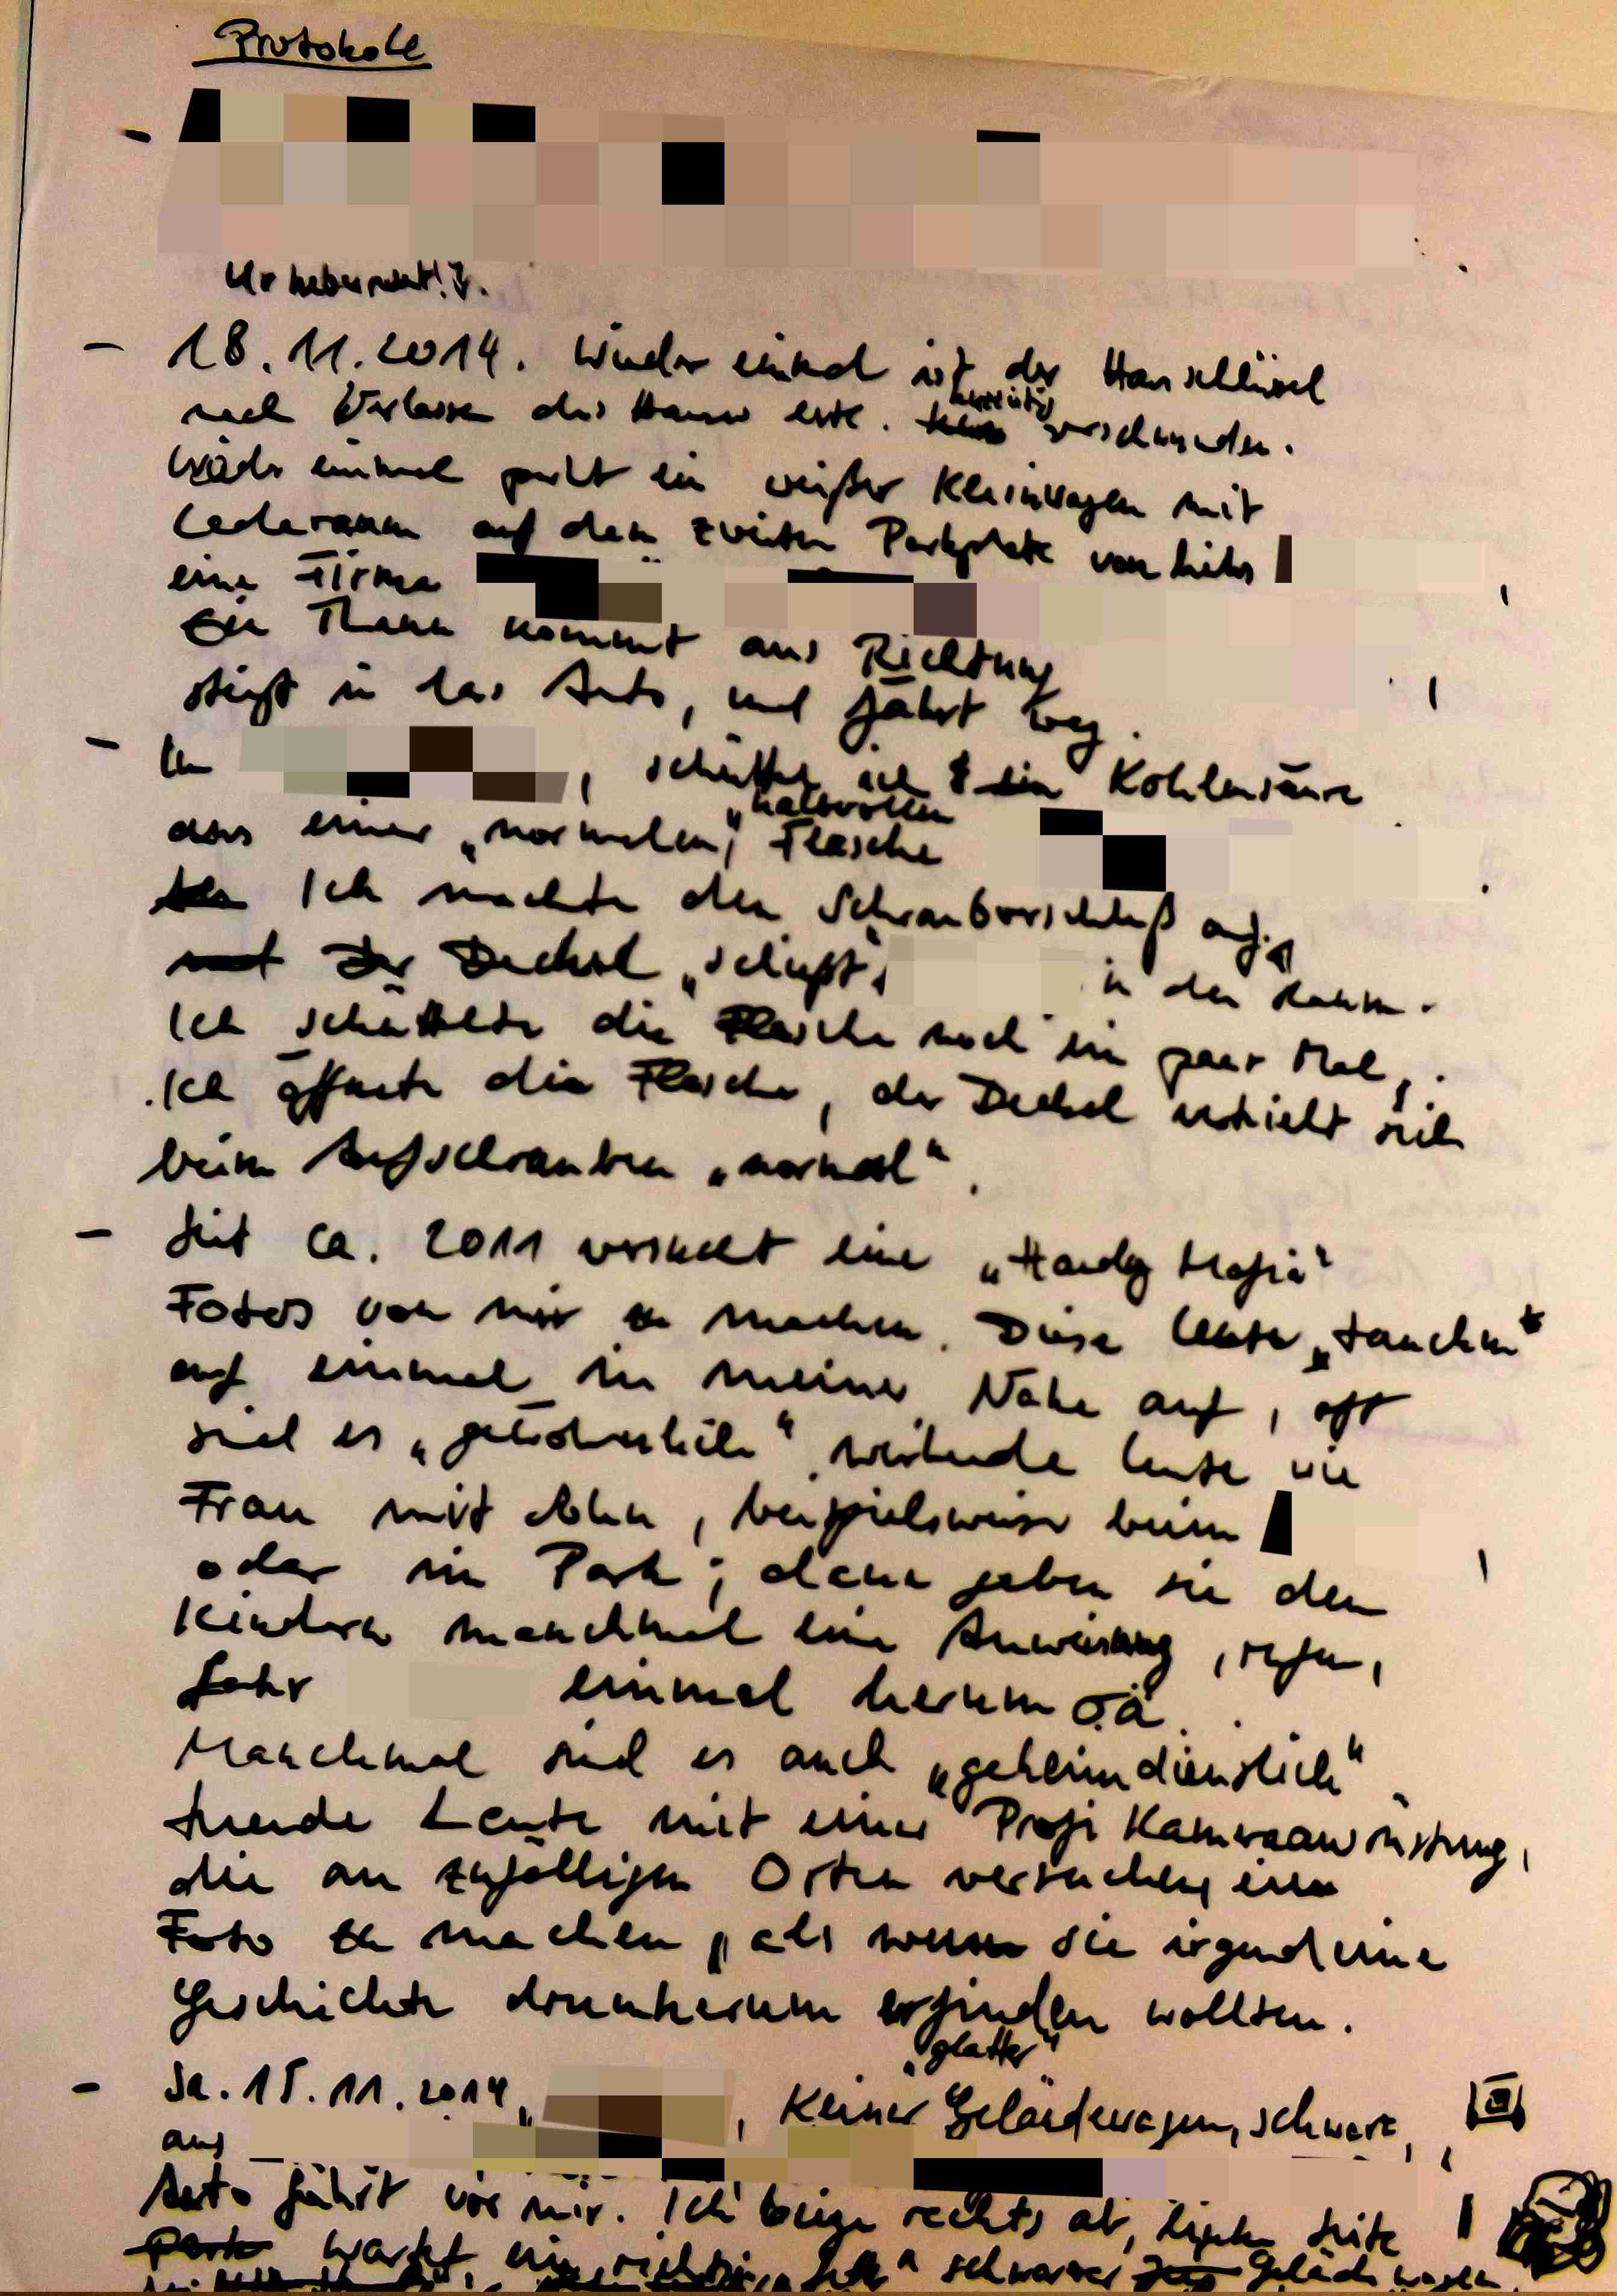 Protokolle
Urheberrecht!
- 18.11.2014. Wieder einmal ist der Hausschlüssel
nach Verlassen des Hauses verschwunden.
Wieder einmal parkt ein weißer Kleinwagen mit
Laderaum auf dem zweiten Parkplatz von links
eine Firma
Ein Mann kommt aus Richtung
steigt in das Auto, und fährt weg.
- In , ich Kohlensäure
"halbvollen
aus einer „normalen" Flasche
Ich machte den Schraubverschluß auf.
Der Deckel „schießt" in den Raum.
Ich schüttelte die Flasche noch ein paar Mal,
Ich öffnete die Flasche, der Deckel verhielt sich
beim Aufschrauben „normal".
- Seit ca. 2011 versucht eine „Handy Mafia"
Fotos von mir zu machen. Diese Leute „tauchen"
auf einmal in meiner Nähe auf, oft
sind es „gewöhnlich" wirkende Leute wie
Frau mit Sohn, beispielsweise beim
oder im Park; dann geben sie den
Kindern manchmal eine Anweisung, rufen,
fahr einmal herum o.ä.
Manchmal sind es auch „geheimdienstlich"
tuende Leute mit einer Profi Kameraausrüstung,
die an zufälligen Orten versuchen, ein
Foto zu machen, als wenn sie irgendeine
Geschichte drumherum erfinden wollten.
"glatter"
- Sa. 15.11.2014, , Kleiner Geländewagen, schwarz,
aus
Auto fährt vor mir. Ich biege rechts ab, linke Seite
wartet ein schwarzer Geländewagen